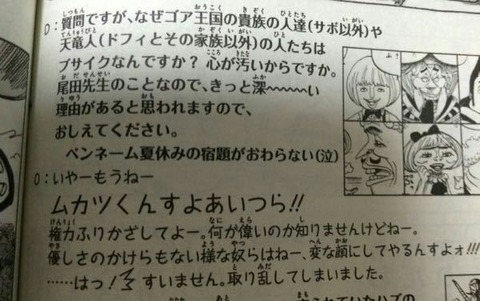 D：質問ですが、なぜゴア王国の貴族の人達(サボ以外)や
天竜人(ドフィとその家族以外)の人たちは
ブサイクなんですか？心が汚いからですか。
尾田先生のことなので、きっと深〜〜〜い
理由があると思われますので、
おしえてください。
ペンネーム夏休みの宿題がおわらない(泣)
O：いやーもうねー
ムカツくんすよあいつら!!
権力ふりかざしてよー。何が偉いのか知りませんけどねー。
優しさのかけらもない様な奴らはねー、変な顔にしてやるんすよォ!!!
……はっ！すいません。取り乱してしまいました。